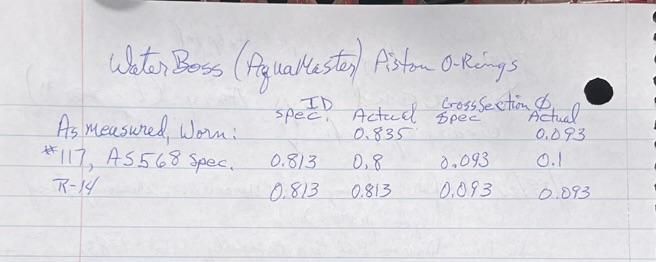 Water Boss (AquaMaster) Piston O-Rings
ID Cross Section Ø,
Spec. Actual Spec Actual
As measured, Worn: 0.835 0.093
#117, AS568 Spec. 0.813 0.8 0.093 0.1
R-14 0.813 0.813 0.093 0.093